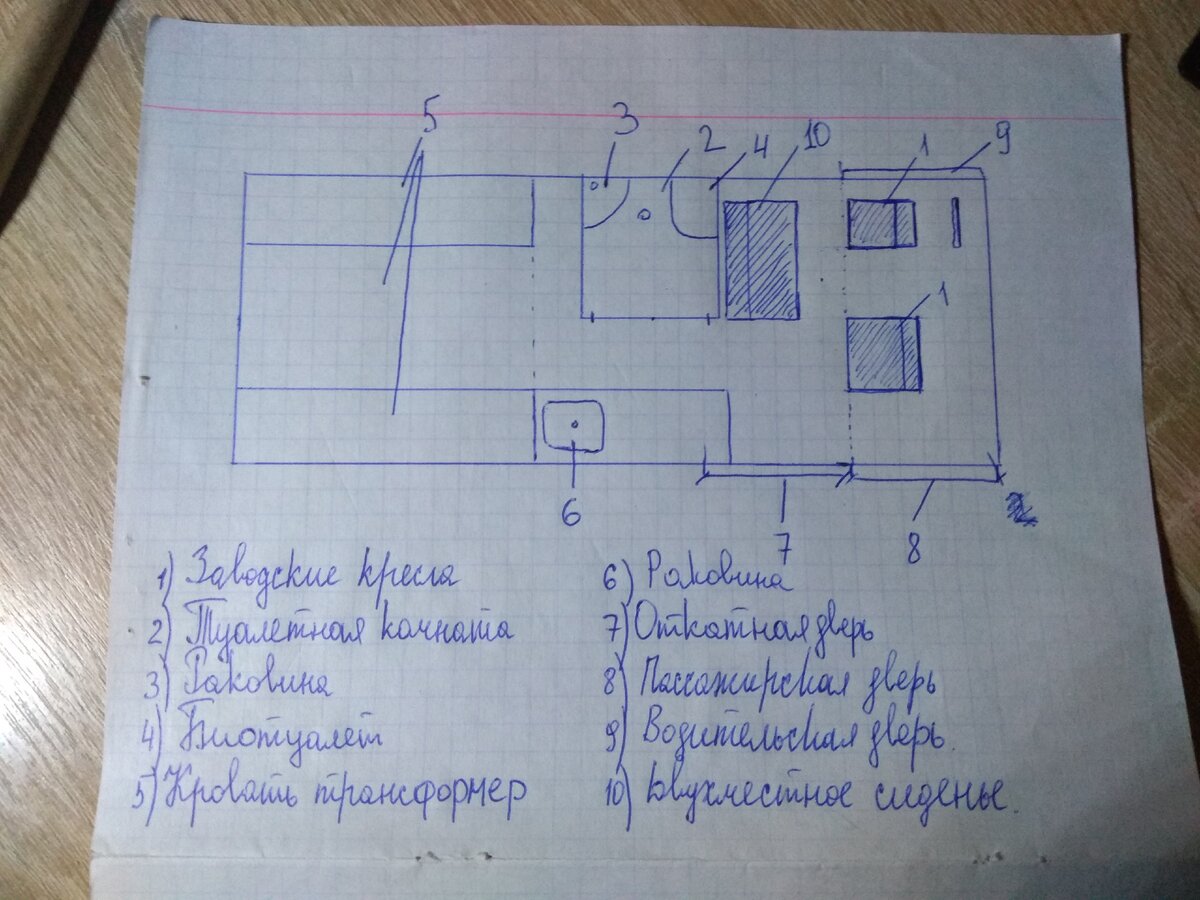 5
3
2
4
10
1
9
1
6
7
8
1) Заводские кресла
2) Туалетная комната
3) Раковина
4) Биотуалет
5) Кровать трансформер
6) Раковина
7) Откатная дверь
8) Пассажирская дверь
9) Водительская дверь.
10) Двухместное сиденье.